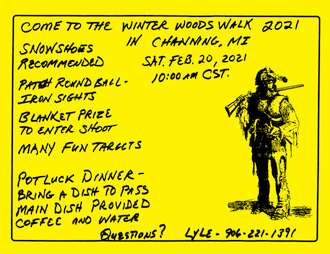 COME TO THE WINTER WOODS WALK 2021
IN CHANNING, MI
SNOWSHOES
RECOMMENDED
SAT. FEB. 20, 2021
10:00 AM CST.
PATCH ROUND BALL -
IRON SIGHTS
BLANKET PRIZE
TO ENTER SHOOT
MANY FUN TARGETS
POTLUCK DINNER -
BRING A DISH TO PASS
MAIN DISH PROVIDED
COFFEE AND WATER
QUESTIONS? LYLE - 906-221-1391